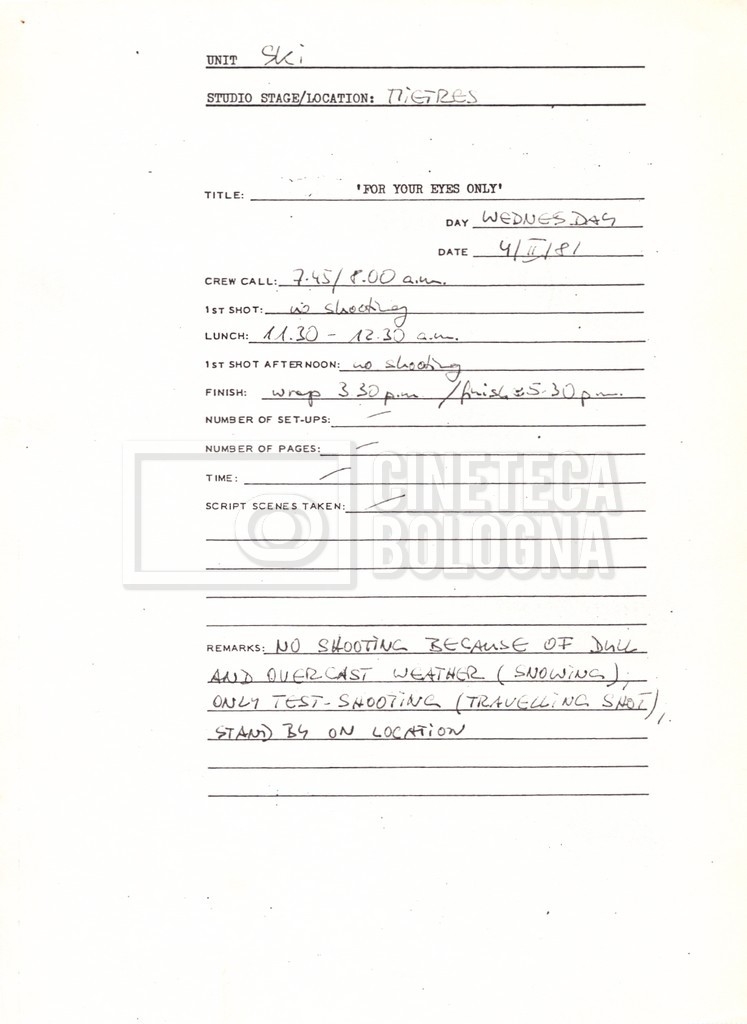 UNIT Ski
STUDIO STAGE/LOCATION: MIETRES
TITLE: 'FOR YOUR EYES ONLY'
DAY WEDNESDAY
DATE 4/II/81
CREW CALL: 7.45/8.00 a.m.
1ST SHOT: no shooting
LUNCH: 11.30 - 12.30 a.m.
1ST SHOT AFTERNOON: no shooting
FINISH: wrap 3 30 p.m. / finish ± 5.30 p.m.
NUMBER OF SET-UPS: —
NUMBER OF PAGES: —
TIME: —
SCRIPT SCENES TAKEN: —
CINETECA
BOLOGNA
REMARKS: NO SHOOTING BECAUSE OF DULL
AND OVERCAST WEATHER (SNOWING),
ONLY TEST-SHOOTING (TRAVELLING SHOT),
STAND BY ON LOCATION